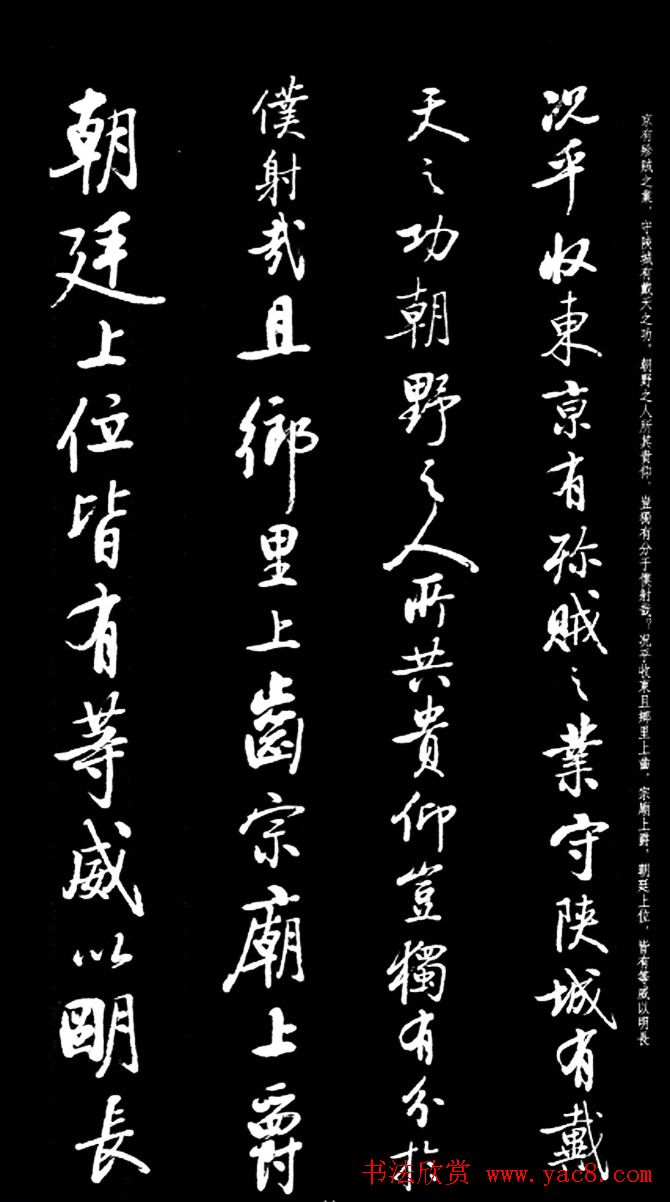 京有殄賊之業，守陝城有戴天之功，朝野之人所共貴仰，豈獨有分于僕射哉。况乎收東且鄉里上齒，宗廟上爵，朝廷上位，皆有等威以明長
况乎收東京有殄賊之業守陝城有戴
天之功朝野之人所共貴仰豈獨有分於
僕射哉且鄉里上齒宗廟上爵
朝廷上位皆有等威以明長
书法欣赏 www.yac8.com